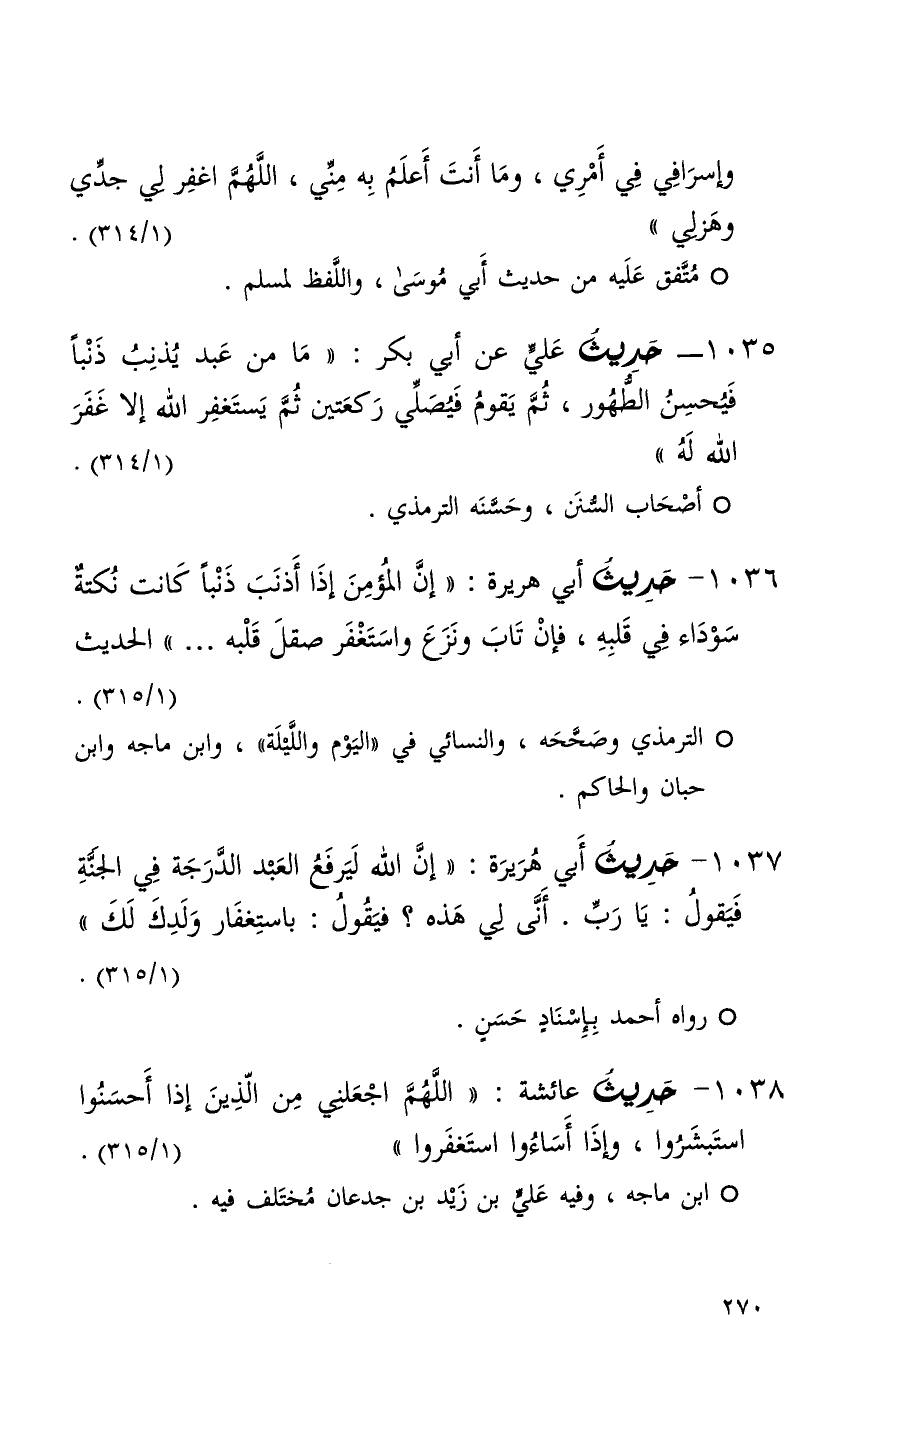 وإسرَافِي فِي أَمْرِي ، ومَا أَنتَ أَعلَمُ بِه مِنِّي ، اللَّهُمَّ اغفِر لِي جدِّي
وهَزلِي » (٣١٤/١) .
○ مُتَّفق عَلَيه من حديث أَبي مُوسَىٰ ، واللَّفظ لمسلم .
١٠٣٥ــ حَدِيثُ عَليٍّ عن أبي بكر : « مَا من عَبد يُذنِبُ ذَنْباً
فَيُحسِنُ الطُّهُور ، ثُمَّ يَقومُ فَيُصَلِّي رَكعَتين ثُمَّ يَستَغفِر الله إلا غَفَرَ
الله لَهُ » (٣١٤/١) .
○ أصْحَاب السُّنَن ، وحَسَّنَه الترمذي .
١٠٣٦- حَدِيثُ أبي هريرة : « إنَّ المُؤمِنَ إذَا أَذنَبَ ذَنْباً كَانت نُكتةٌ
سَوْدَاء فِي قَلبِهِ ، فإنْ تَابَ ونَزَعَ واسَتَغْفَر صقلَ قَلْبه ... » الحديث
(٣١٥/١) .
○ الترمذي وصَحَّحَه ، والنسائي في «اليَوْم واللَّيْلَة» ، وابن ماجه وابن
حبان والحاكم .
١٠٣٧- حَدِيثُ أَبي هُرَيرَة : « إنَّ الله لَيَرفَعُ العَبْد الدَّرَجَة فِي الجَنَّةِ
فَيَقولُ : يَا رَبِّ . أَنَّى لِي هَذه ؟ فيَقُولُ : باستِغفَار وَلَدِكَ لَكَ »
(٣١٥/١) .
○ رواه أحمد بِإسْنَادٍ حَسَنٍ .
١٠٣٨- حَدِيثُ عائشة : « اللَّهُمَّ اجْعَلنِي مِن الَّذِينَ إذا أَحسَنُوا
استَبشَرُوا ، وإذَا أَسَاءُوا استَغفَروا » (٣١٥/١) .
○ ابن ماجه ، وفيه عَليٍّ بن زَيْد بن جدعان مُختَلف فيه .
٢٧٠